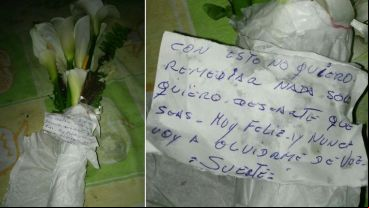 CON ESTO NO QUIERO
REMEDIAR NADA SOLO
QUIERO DESEARTE QUE
SEAS MUY FELIZ Y NUNCA
VOY A OLVIDARME DE VOS
= SUERTE =